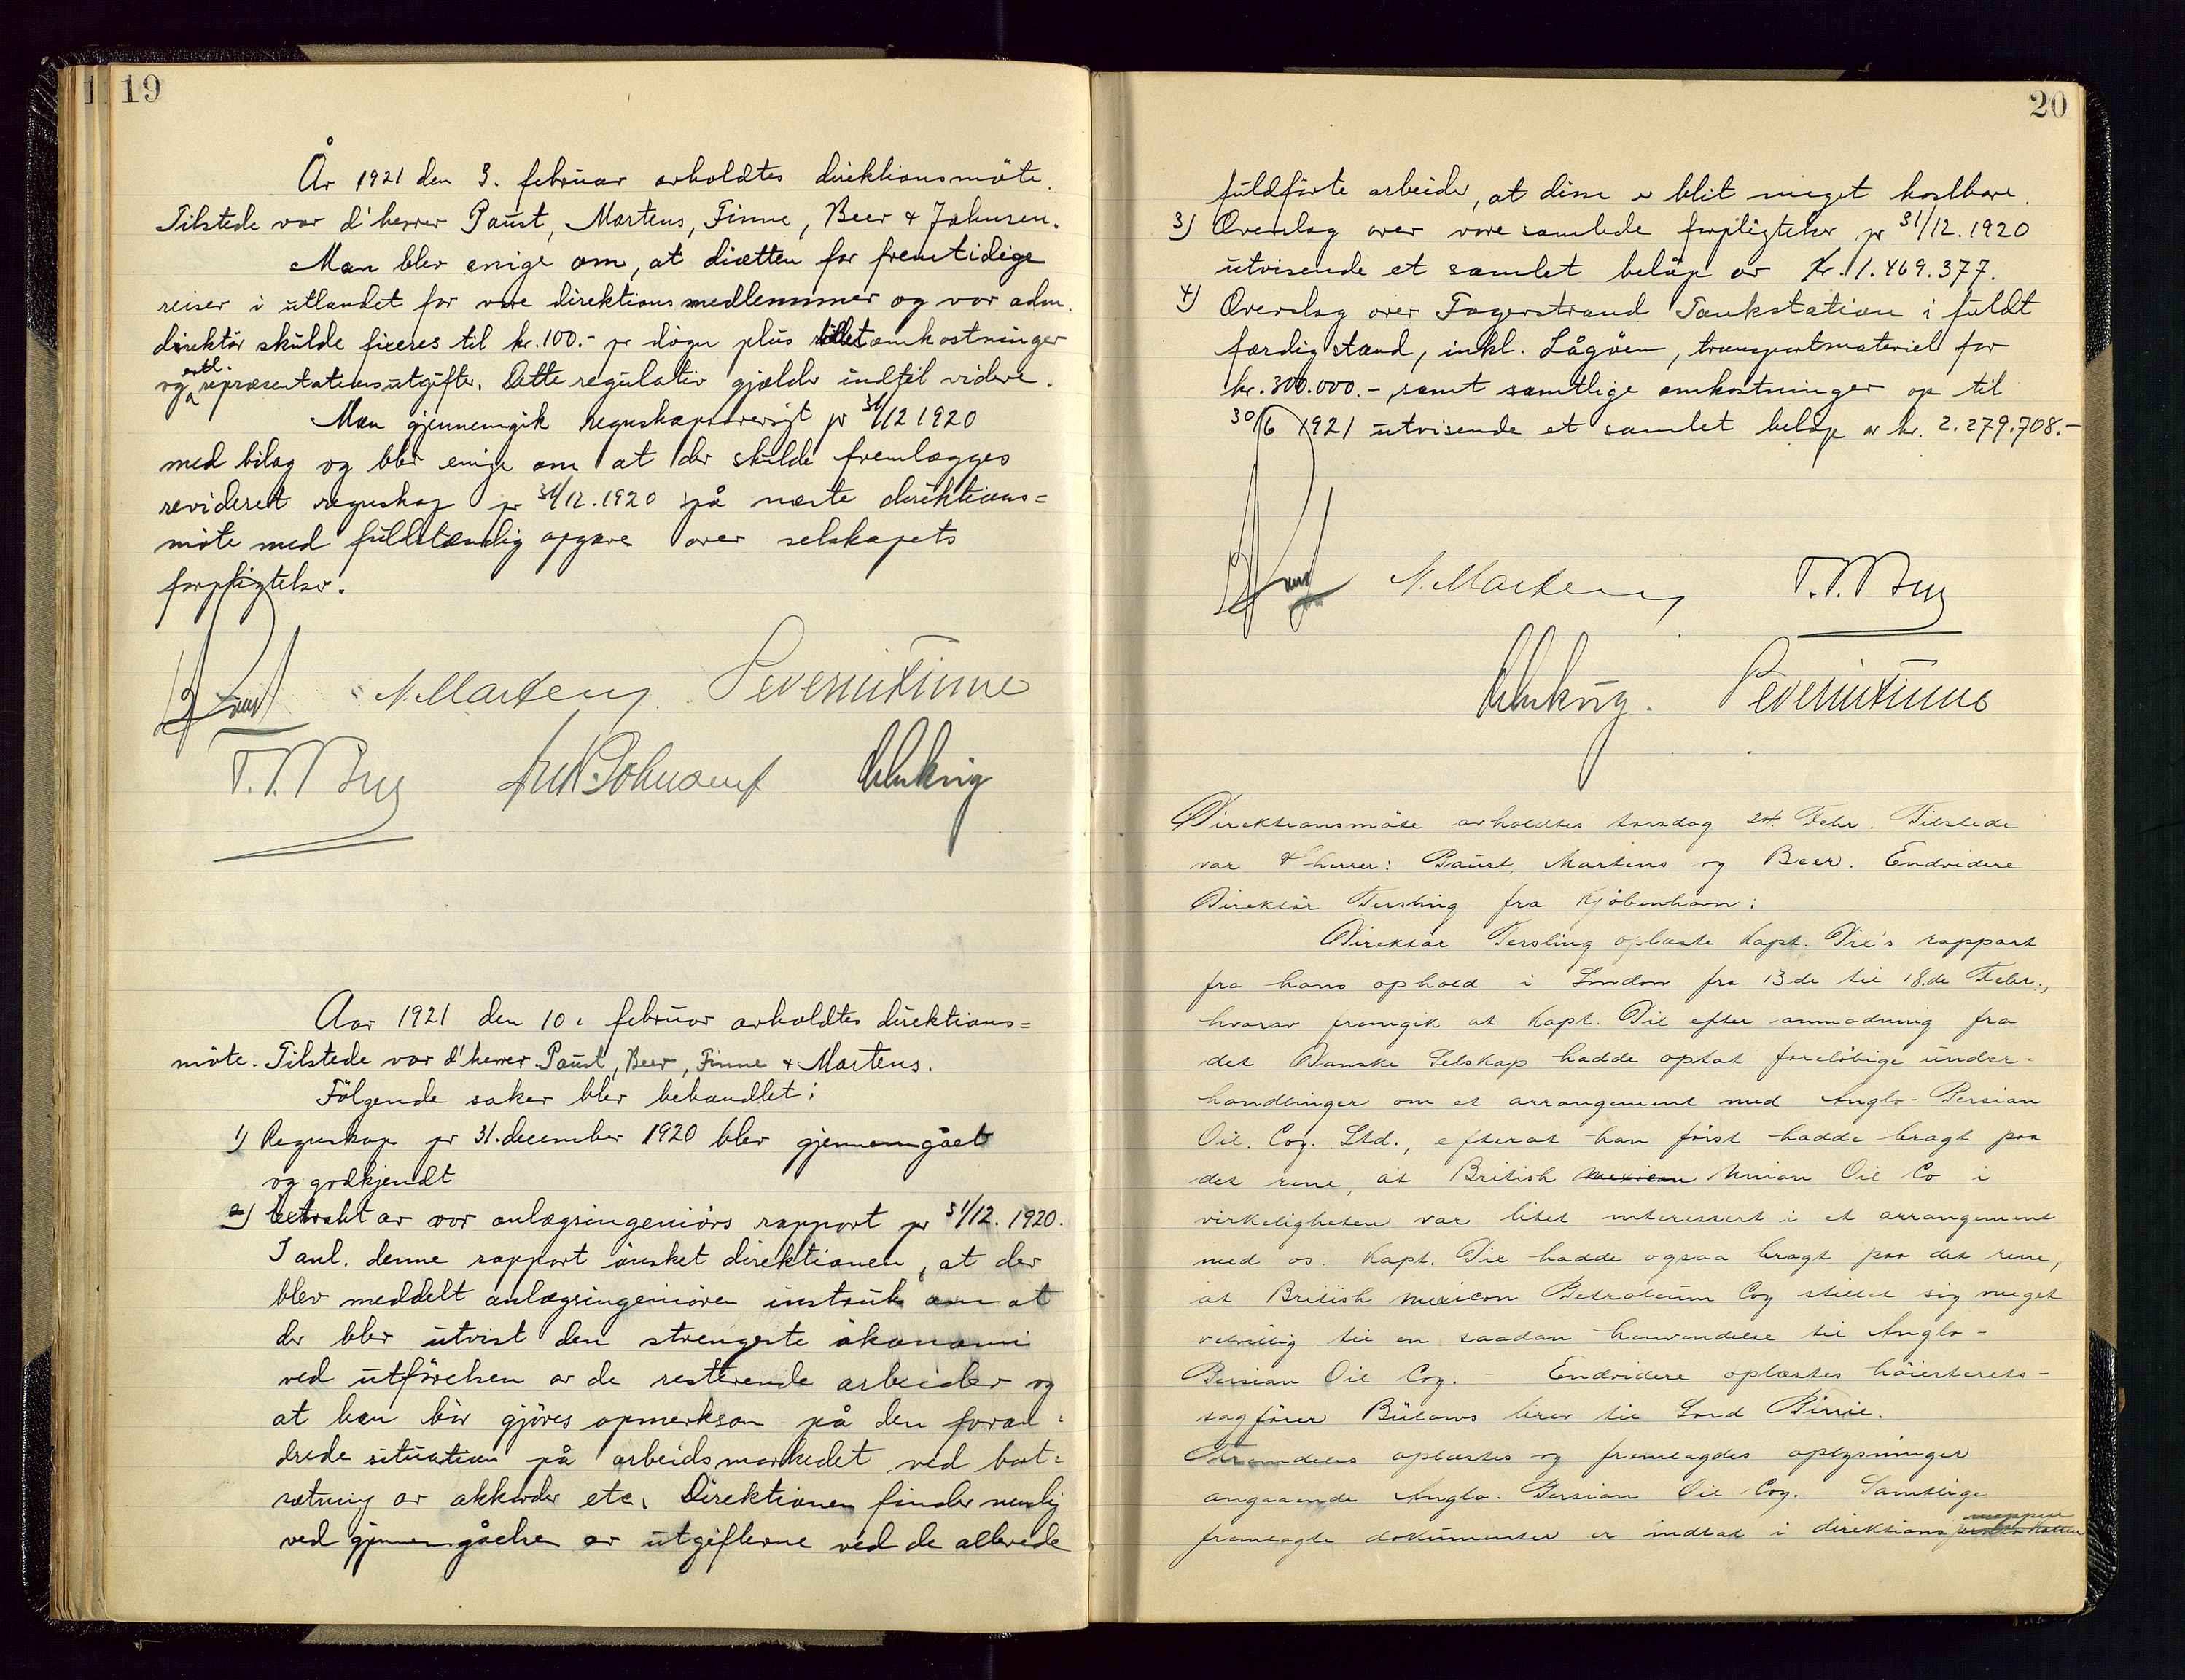 19
År 1921 den 3. februar avholdtes direktionsmöte.
Tilstede var d'herrer Paust, Martens, Finne, Beer & Johnsen.
Man blev enige om, at diætten for fremtidige
reiser i utlandet for vore direktionsmedlemmer og vor adm.
direktör skulde fixeres til kr. 100.- pr dögn plus billetomkostninger
og evtl. repræsentationsutgifter. Dette regulativ gjælder indtil videre.
Man gjennemgik regnskapsoversigt pr 31/12 1920
med bilag og blev enige om at der skulde fremlægges
revideret regnskap pr 31/12.1920 på næste direktions=
möte med fuldstændig opgave over selskapets
forpligtelser.
Paust N. Martens Severin Finne
T.T. Beer
Aar 1921 den 10. februar avholdtes direktions=
möte. Tilstede var d'herrer Paust, Beer, Finne & Martens.
Fölgende saker blev behandlet:
1) Regnskap pr 31. december 1920 blev gjennemgået
og godkjendt
2) Extrakt av vor anlægsingeniörs rapport pr 31/12. 1920.
I anl. denne rapport önsket direktionen, at der
blev meddelt anlægsingeniören instruk om at
der blev utvist den strengeste ökonomi
ved utförelsen av de resterende arbeider og
at han bör gjöres opmerksom på den foran=
drede situation på arbeidsmarkedet ved bort=
sætning av akkorder etc. Direktionen finder nemlig
ved gjennemgåelse av utgifterne ved de allerede
20
fuldförte arbeider, at disse er blit meget kostbare.
3) Overslag over vore samlede forpligtelser pr 31/12.1920
utvisende et samlet belöp av Kr. 1.469.377.
4) Overslag over Fagerstrand Tankstation i fuldt
færdig stand, inkl. Lågöen, transportmateriel for
kr. 300.000.- samt samtlige omkostninger op til
30/6 1921 utvisende et samlet belöp av kr. 2.279.708.-
Paust N. Martens T.T. Beer
Severin Finne
Direktionsmöte avholdtes torsdag 24. Febr. Tilstede
var d'herrer: Paust, Martens og Beer. Endvidere
Direktör Tersling fra Kjöbenhavn:
Direktör Tersling oplæste Kapt. Die's rapport
fra hans ophold i London fra 13de til 18.de Febr.,
hvorav fremgik at Kapt. Die efter anmodning fra
det Danske Selskap hadde optat forelöbige under=
handlinger om et arrangement med Anglo-Persian
Oil. Coy. Ltd., efterat han först hadde bragt paa
det rene, at British mexican Union Oil Co i
virkeligheten var litet interessert i et arrangement
med os. Kapt. Die hadde ogsaa bragt paa det rene,
at British mexican Petroleum Coy stillet sig meget
velvillig til en saadan henvendelse til Anglo-
Persian Oil Coy. - Endvidere oplæstes höiesterets-
sagförer Bülows brev til Lord Pirrie.
Fremdeles oplæstes og fremlagdes oplysninger
angaaende Anglo-Persian Oil Coy. Samtlige
fremlagte dokumenter er indtat i direktionsmappen